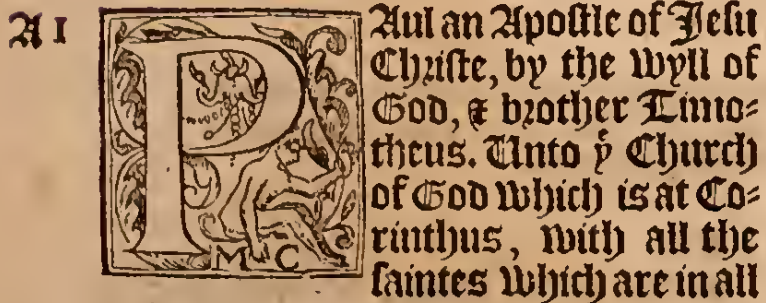 A 1
PAul an Apostle of Jesu
Christe, by the wyll of
God, & brother Timo=
theus. Unto yͤ Church
of God which is at Co=
rinthus, with all the
saintes which are in all
M C